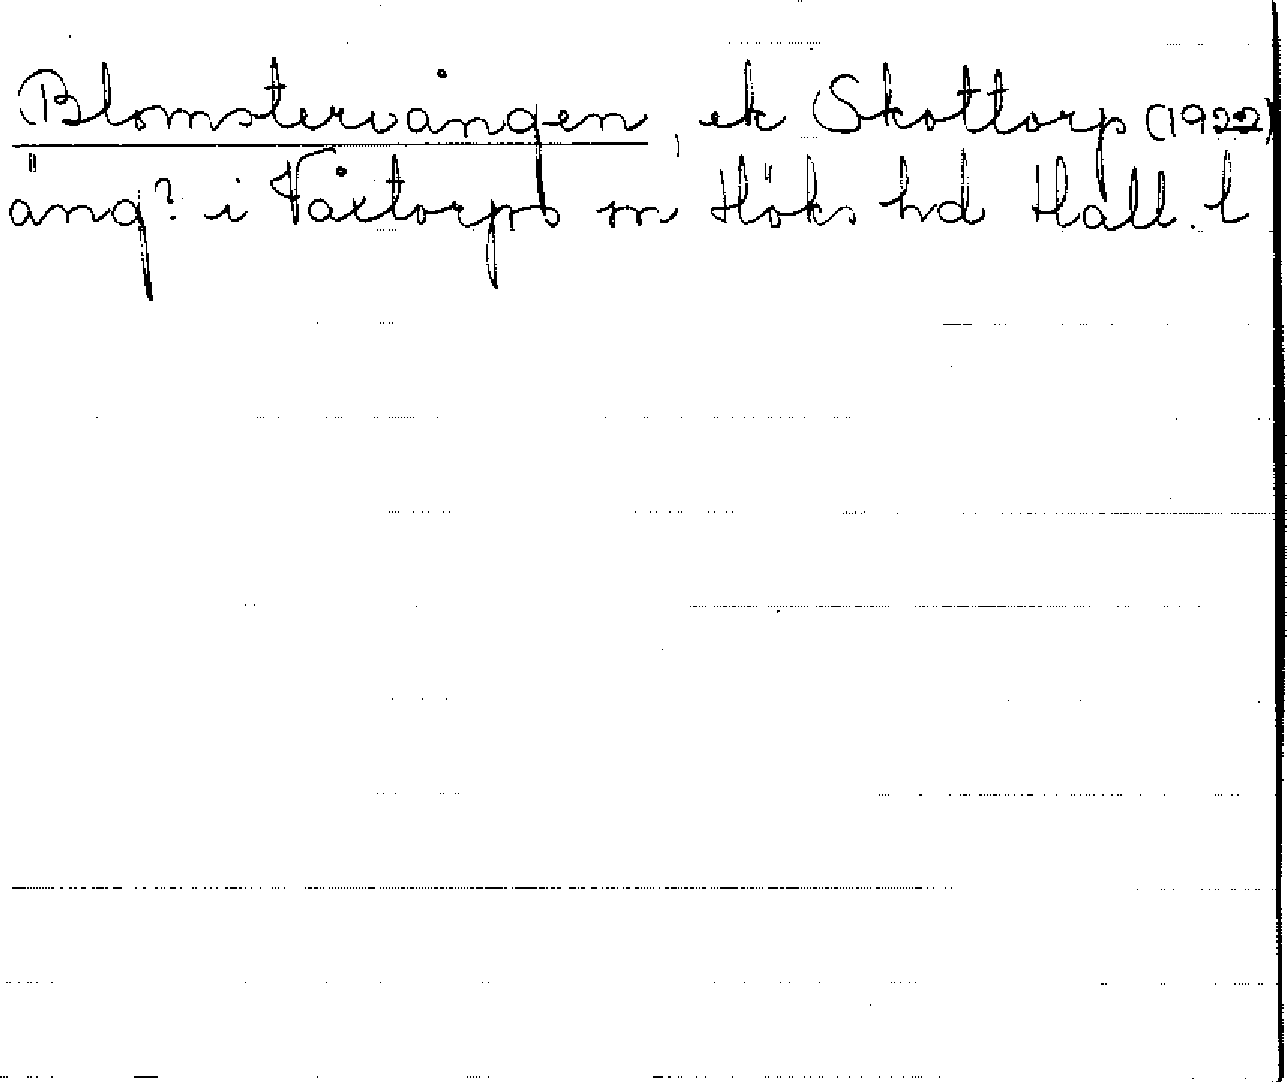 Blomstervången, ek Skottorp (1922)
äng? i Våxtorps sn Höks hd Hall. l